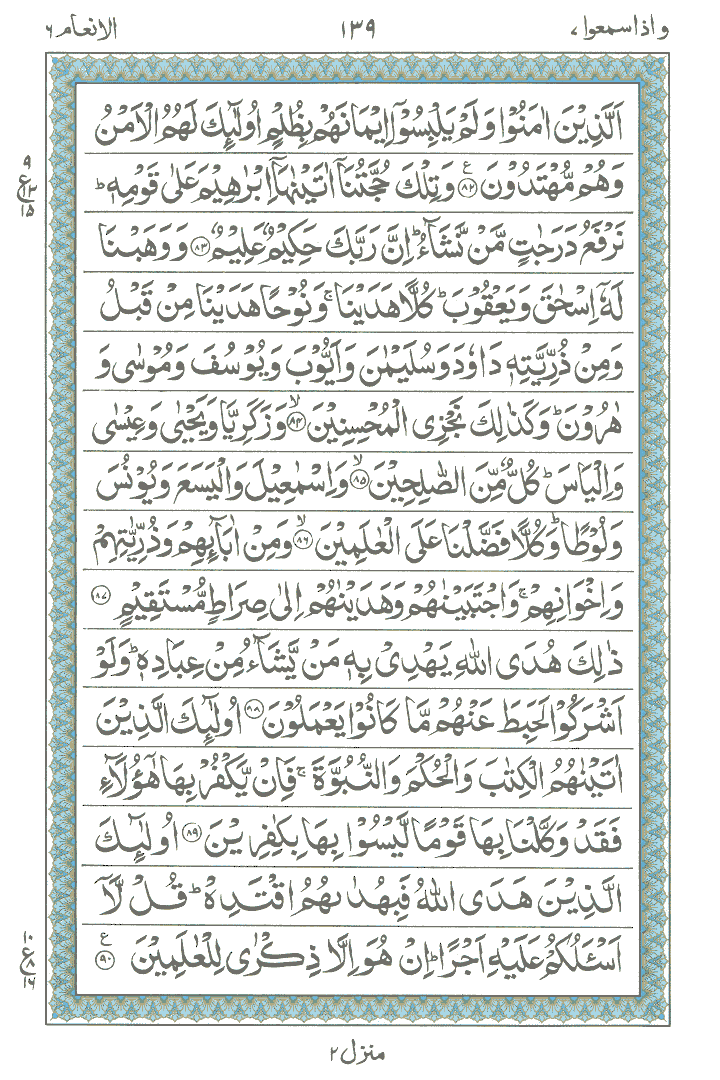 واذاسمعوا۷ ۱۳۹ الانعام۶
اَلَّذِیْنَ اٰمَنُوْا وَلَمْ یَلْبِسُوْۤا اِیْمَانَهُمْ بِظُلْمٍ اُولٰٓئِكَ لَهُمُ الْاَمْنُ
وَهُمْ مُّهْتَدُوْنَ ﴿۸۲﴾ۧ وَتِلْكَ حُجَّتُنَاۤ اٰتَیْنٰهَاۤ اِبْرٰهِیْمَ عَلٰی قَوْمِهٖ ؕ
۹
ع
۱۳
۱۵
نَرْفَعُ دَرَجٰتٍ مَّنْ نَّشَآءُ ؕ اِنَّ رَبَّكَ حَكِیْمٌ عَلِیْمٌ ﴿۸۳﴾ وَوَهَبْنَا
لَهٗۤ اِسْحٰقَ وَیَعْقُوْبَ ؕ كُلًّا هَدَیْنَا ۚ وَنُوْحًا هَدَیْنَا مِنْ قَبْلُ
وَمِنْ ذُرِّیَّتِهٖ دَاوٗدَ وَسُلَیْمٰنَ وَاَیُّوْبَ وَیُوْسُفَ وَمُوْسٰی وَ
هٰرُوْنَ ؕ وَكَذٰلِكَ نَجْزِی الْمُحْسِنِیْنَ ﴿۸۴﴾ۙ وَزَكَرِیَّا وَیَحْیٰی وَعِیْسٰی
وَاِلْیَاسَ ؕ كُلٌّ مِّنَ الصّٰلِحِیْنَ ﴿۸۵﴾ۙ وَاِسْمٰعِیْلَ وَالْیَسَعَ وَیُوْنُسَ
وَلُوْطًا ؕ وَكُلًّا فَضَّلْنَا عَلَی الْعٰلَمِیْنَ ﴿۸۶﴾ۙ وَمِنْ اٰبَآئِهِمْ وَذُرِّیّٰتِهِمْ
وَاِخْوَانِهِمْ ۚ وَاجْتَبَیْنٰهُمْ وَهَدَیْنٰهُمْ اِلٰی صِرَاطٍ مُّسْتَقِیْمٍ ﴿۸۷﴾
ذٰلِكَ هُدَی اللّٰهِ یَهْدِیْ بِهٖ مَنْ یَّشَآءُ مِنْ عِبَادِهٖ ؕ وَلَوْ
اَشْرَكُوْا لَحَبِطَ عَنْهُمْ مَّا كَانُوْا یَعْمَلُوْنَ ﴿۸۸﴾ اُولٰٓئِكَ الَّذِیْنَ
اٰتَیْنٰهُمُ الْكِتٰبَ وَالْحُكْمَ وَالنُّبُوَّةَ ۚ فَاِنْ یَّكْفُرْ بِهَا هٰۤؤُلَآءِ
فَقَدْ وَكَّلْنَا بِهَا قَوْمًا لَّیْسُوْا بِهَا بِكٰفِرِیْنَ ﴿۸۹﴾ اُولٰٓئِكَ
الَّذِیْنَ هَدَی اللّٰهُ فَبِهُدٰىهُمُ اقْتَدِهْ ؕ قُلْ لَّاۤ
اَسْئَلُكُمْ عَلَیْهِ اَجْرًا ؕ اِنْ هُوَ اِلَّا ذِكْرٰی لِلْعٰلَمِیْنَ ﴿۹۰﴾ۧ
۱۰
ع
۸
۱۶
منزل۲